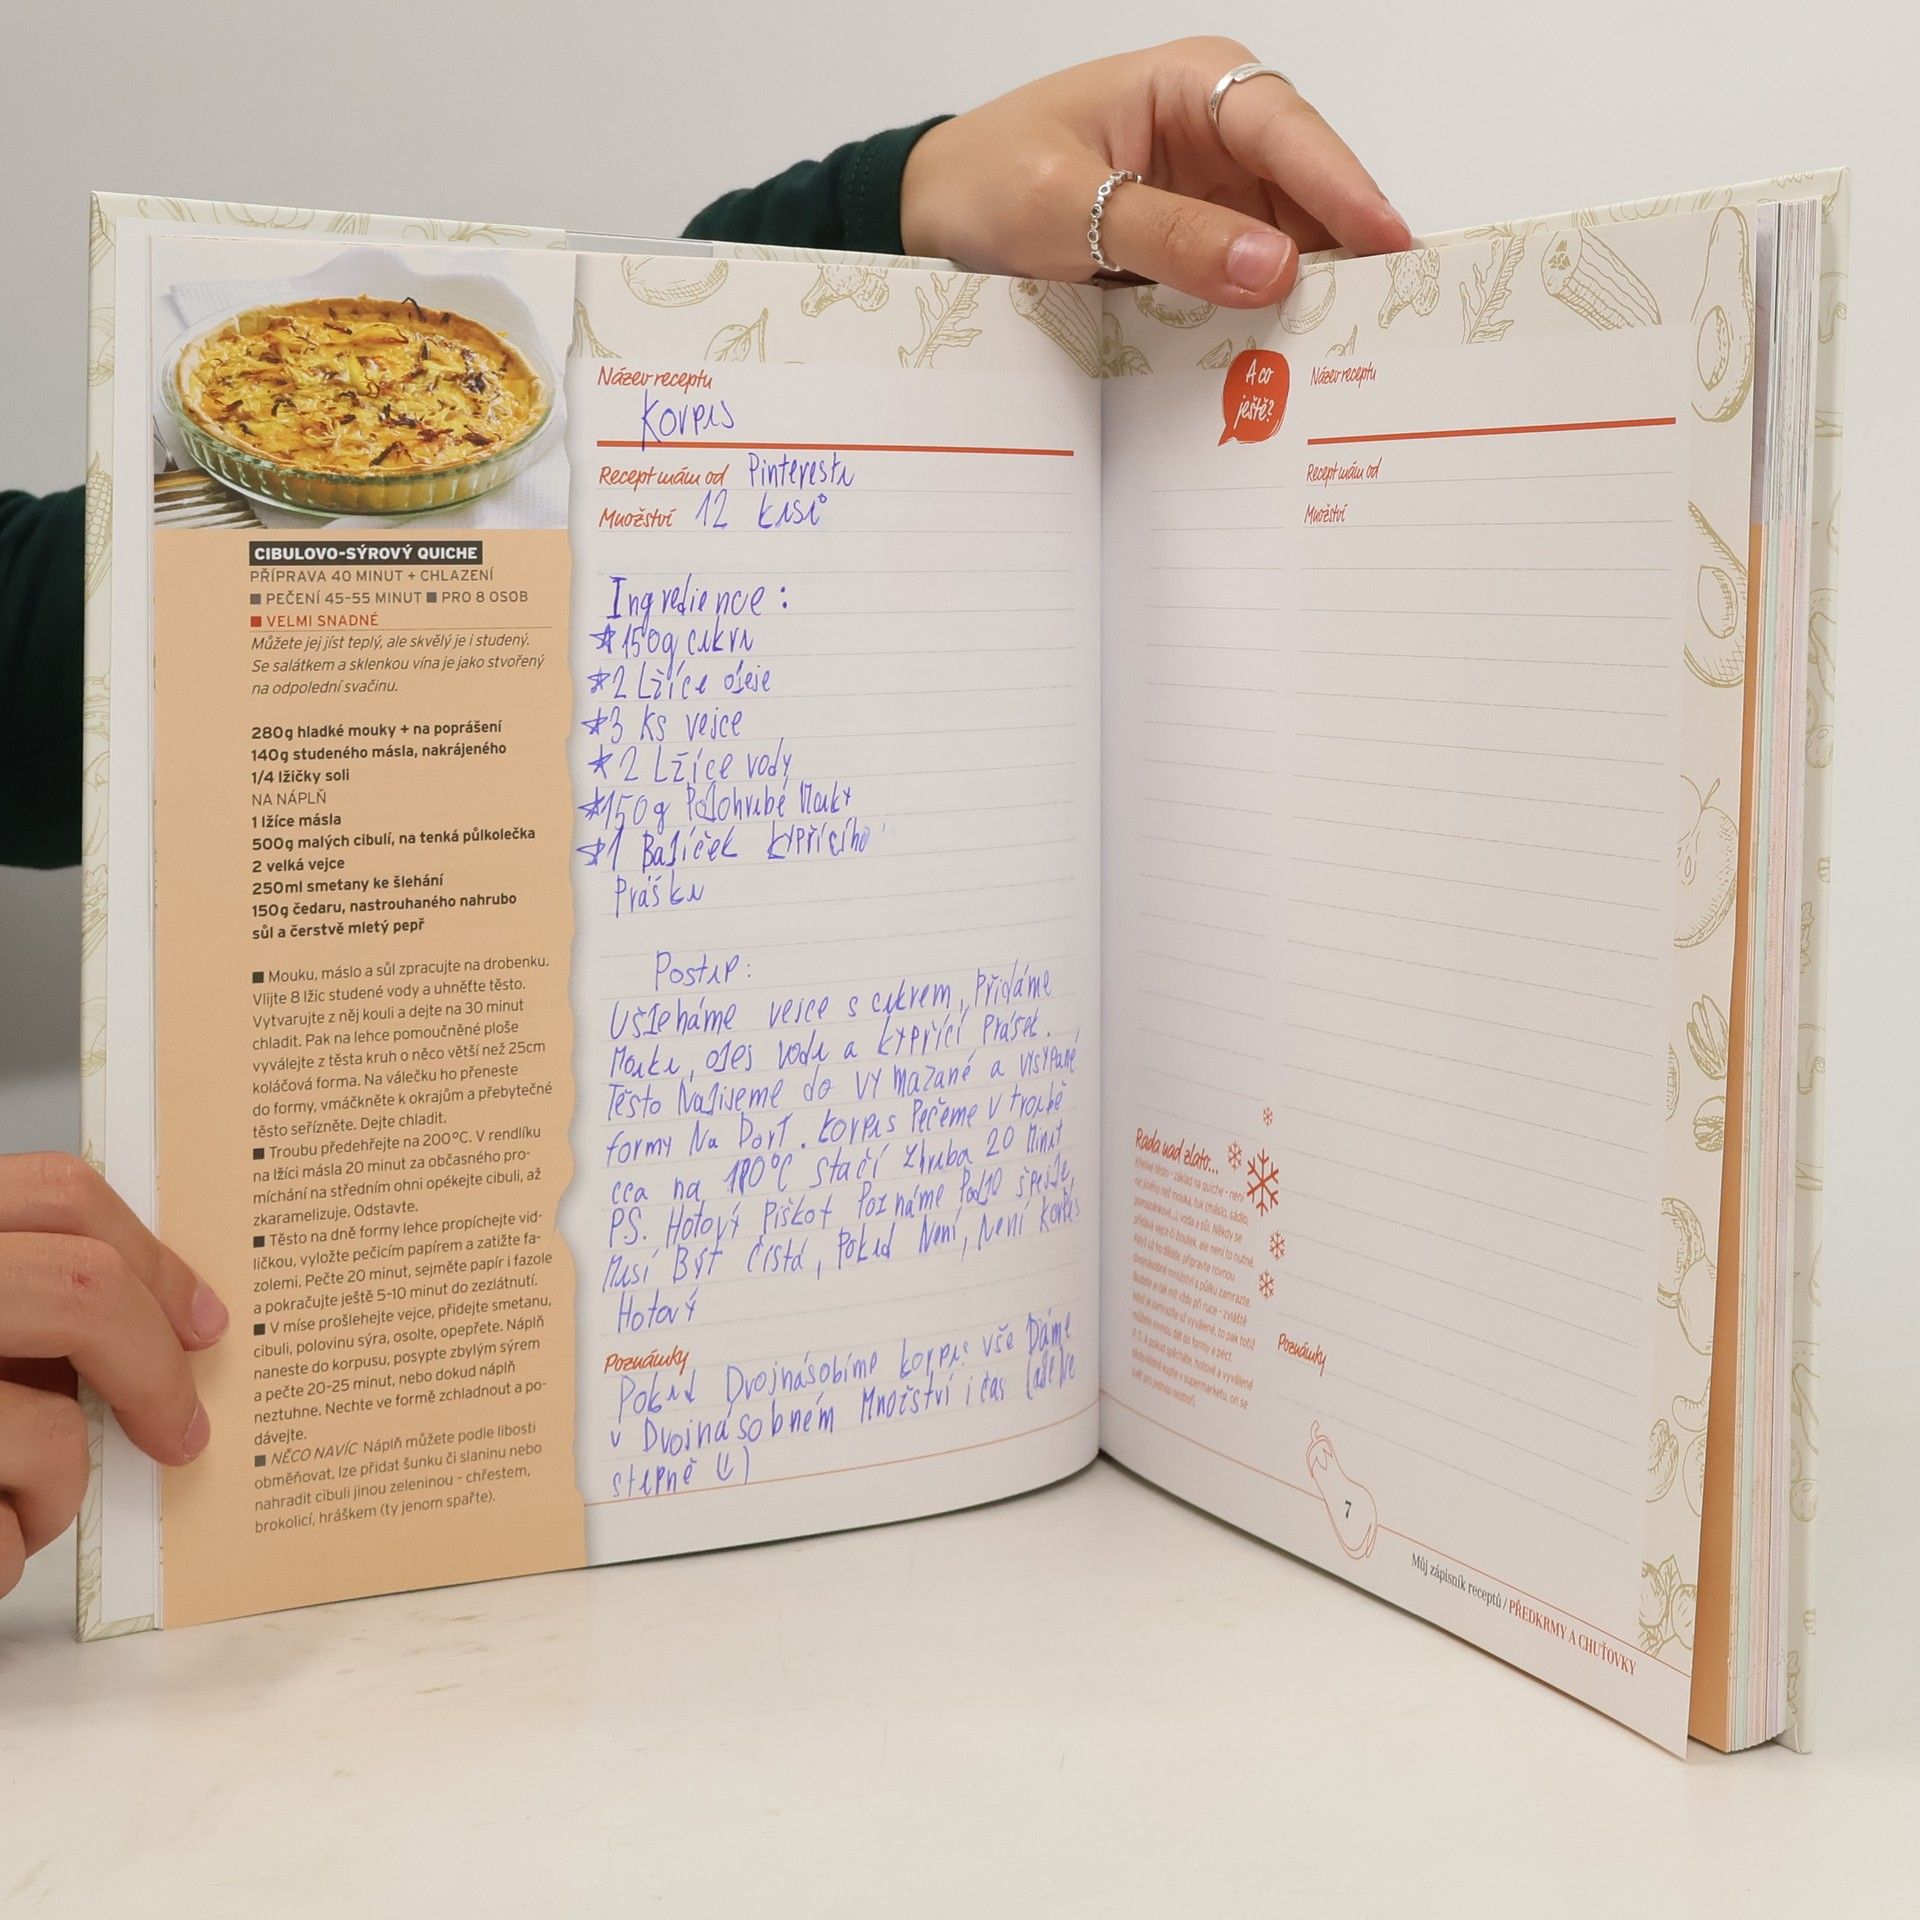 CIBULOVO-SÝROVÝ QUICHE
PŘÍPRAVA 40 MINUT + CHLAZENÍ
■ PEČENÍ 45-55 MINUT ■ PRO 8 OSOB
■ VELMI SNADNÉ
Můžete jej jíst teplý, ale skvělý je i studený.
Se salátkem a sklenkou vína je jako stvořený
na odpolední svačinu.
280g hladké mouky + na poprášení
140g studeného másla, nakrájeného
1/4 lžičky soli
NA NÁPLŇ
1 lžíce másla
500g malých cibulí, na tenká půlkolečka
2 velká vejce
250ml smetany ke šlehání
150g čedaru, nastrouhaného nahrubo
sůl a čerstvě mletý pepř
■ Mouku, máslo a sůl zpracujte na drobenku.
Vlijte 8 lžic studené vody a uhněťte těsto.
Vytvarujte z něj kouli a dejte na 30 minut
chladit. Pak na lehce pomoučněné ploše
vyválejte z těsta kruh o něco větší než 25cm
koláčová forma. Na válečku ho přeneste
do formy, vmáčkněte k okrajům a přebytečné
těsto seřízněte. Dejte chladit.
■ Troubu předehřejte na 200°C. V rendlíku
na lžíci másla 20 minut za občasného pro-
míchání na středním ohni opékejte cibuli, až
zkaramelizuje. Odstavte.
■ Těsto na dně formy lehce propíchejte vid-
ličkou, vyložte pečicím papírem a zatižte fa-
zolemi. Pečte 20 minut, sejměte papír i fazole
a pokračujte ještě 5-10 minut do zezlátnutí.
■ V míse prošlehejte vejce, přidejte smetanu,
cibuli, polovinu sýra, osolte, opepřete. Náplň
naneste do korpusu, posypte zbylým sýrem
a pečte 20-25 minut, nebo dokud náplň
neztuhne. Nechte ve formě zchladnout a po-
dávejte.
■ NĚCO NAVÍC Náplň můžete podle libosti
obměňovat, lze přidat šunku či slaninu nebo
nahradit cibuli jinou zeleninou - chřestem,
brokolicí, hráškem (ty jenom spařte).
Název receptu
Korpus
Recept mám od Pinterestu
Množství 12 kusů
Ingredience :
*150g cukru
*2 Lžíce oleje
*3 ks vejce
*2 Lžíce vody
*150g Polohrubé Mouky
*1 Balíček kypřícího
Prášku
Postup:
Ušleháme vejce s cukrem, Přidáme
Mouku, olej vodu a kypřící Prášek.
Těsto Nalijeme do vymazané a vysypané
formy Na Dort. korpus Pečeme v troubě
cca na 180°C stačí zhruba 20 Minut
PS. Hotový Piškot Poznáme Podle špejle,
Musí Být čistá, Pokud Není, Není korpus
Hotový
Poznámky
Pokud Dvojnásobíme korpus vše Dáme
v Dvojnásobném Množství i čas
A co
ještě?
Název receptu
Recept mám od
Množství
Rada nad zlato...
Křehké těsto - základ na quiche - není
nic jiného než mouka, tuk (máslo, sádlo,
pomazánkové...), voda a sůl. Někdy se
přidává vejce či žloutek, ale není to nutné.
Když už ho děláte, připravte rovnou
dvojnásobné množství a půlku zamrazte.
Budete je tak mít vždy při ruce - zvláště
když je zamrazíte už vyválené, to pak totiž
můžete rovnou dát do formy a péct.
Poznámky
7
Můj zápisník receptů / PŘEDKRMY A CHUŤOVKY